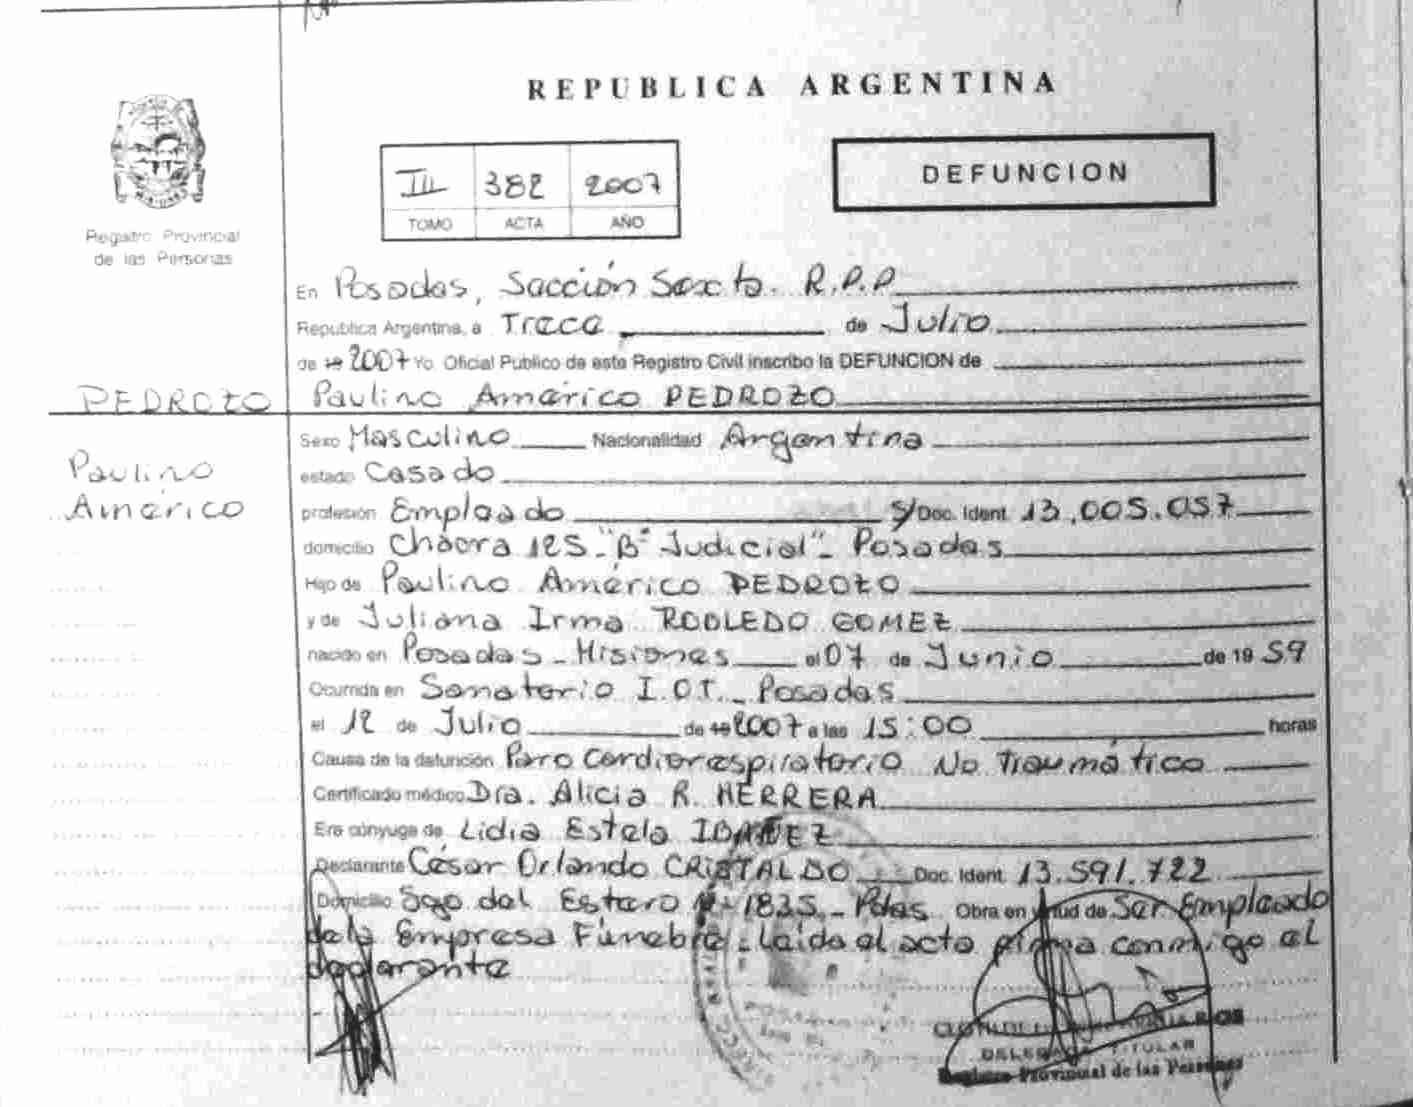 REPUBLICA ARGENTINA
DEFUNCION
III 382 2007
TOMO ACTA AÑO
Registro Provincial
de las Personas
En Posadas, Sección Sexta. R.P.P
Republica Argentina, a Trece de Julio
de 19 2007 Yo Oficial Publico de este Registro Civil inscribo la DEFUNCION de
PEDROZO Paulino Américo PEDROZO
Sexo Masculino Nacionalidad Argentina
Paulino
estado Casado
Américo
profesión Empleado S/ Doc. Ident. 13.005.057
domicilio Chacra 125-"B° Judicial"- Posadas
Hijo de Paulino Américo PEDROZO
y de Juliana Irma ROBLEDO GOMEZ
nacido en Posadas - Misiones el 07 de Junio de 19 59
Ocurrida en Sanatorio I.O.T. - Posadas
el 12 de Julio de 19 2007 a las 15:00 horas
Causa de la defunción Paro Cardiorespiratorio No Traumático
Certificado médico Dra. Alicia R. HERRERA
Era cónyuge de Lidia Estela IBAÑEZ
Declarante César Orlando CRISTALDO Doc. Ident. 13.591.722
Domicilio Sgo del Estero N° 1835 - Pdas Obra en virtud de Ser Empleado
de la Empresa Fúnebre - Leída el acta firma conmigo el
declarante
RIOS
DELEGADA TITULAR
Registro Provincial de las Personas